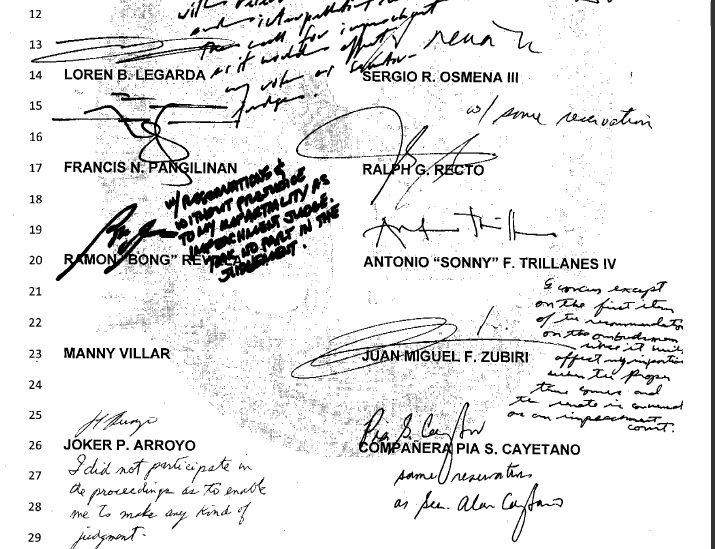 12
13
14 LOREN B. LEGARDA SERGIO R. OSMENA III
15
w/ some reservation
16
17 FRANCIS N. PANGILINAN RALPH G. RECTO
w/ RESERVATIONS &
WITHOUT PREJUDICE
TO MY IMPARTIALITY AS
IMPEACHMENT JUDGE.
TOOK NO PART IN THE
JUDGEMENT.
18
19
20 RAMON "BONG" REVILLA ANTONIO "SONNY" F. TRILLANES IV
I concur except
on the first item
of the recommendation
on the ombudsman
since it will
affect my
when the proper
time comes and
the senate is convened
as an impeachment
court.
21
22
23 MANNY VILLAR JUAN MIGUEL F. ZUBIRI
24
25
26 JOKER P. ARROYO COMPAÑERA PIA S. CAYETANO
I did not participate in
the proceedings as to enable
me to make any kind of
judgment.
same reservation
as Sen. Alan Cayetano
27
28
29